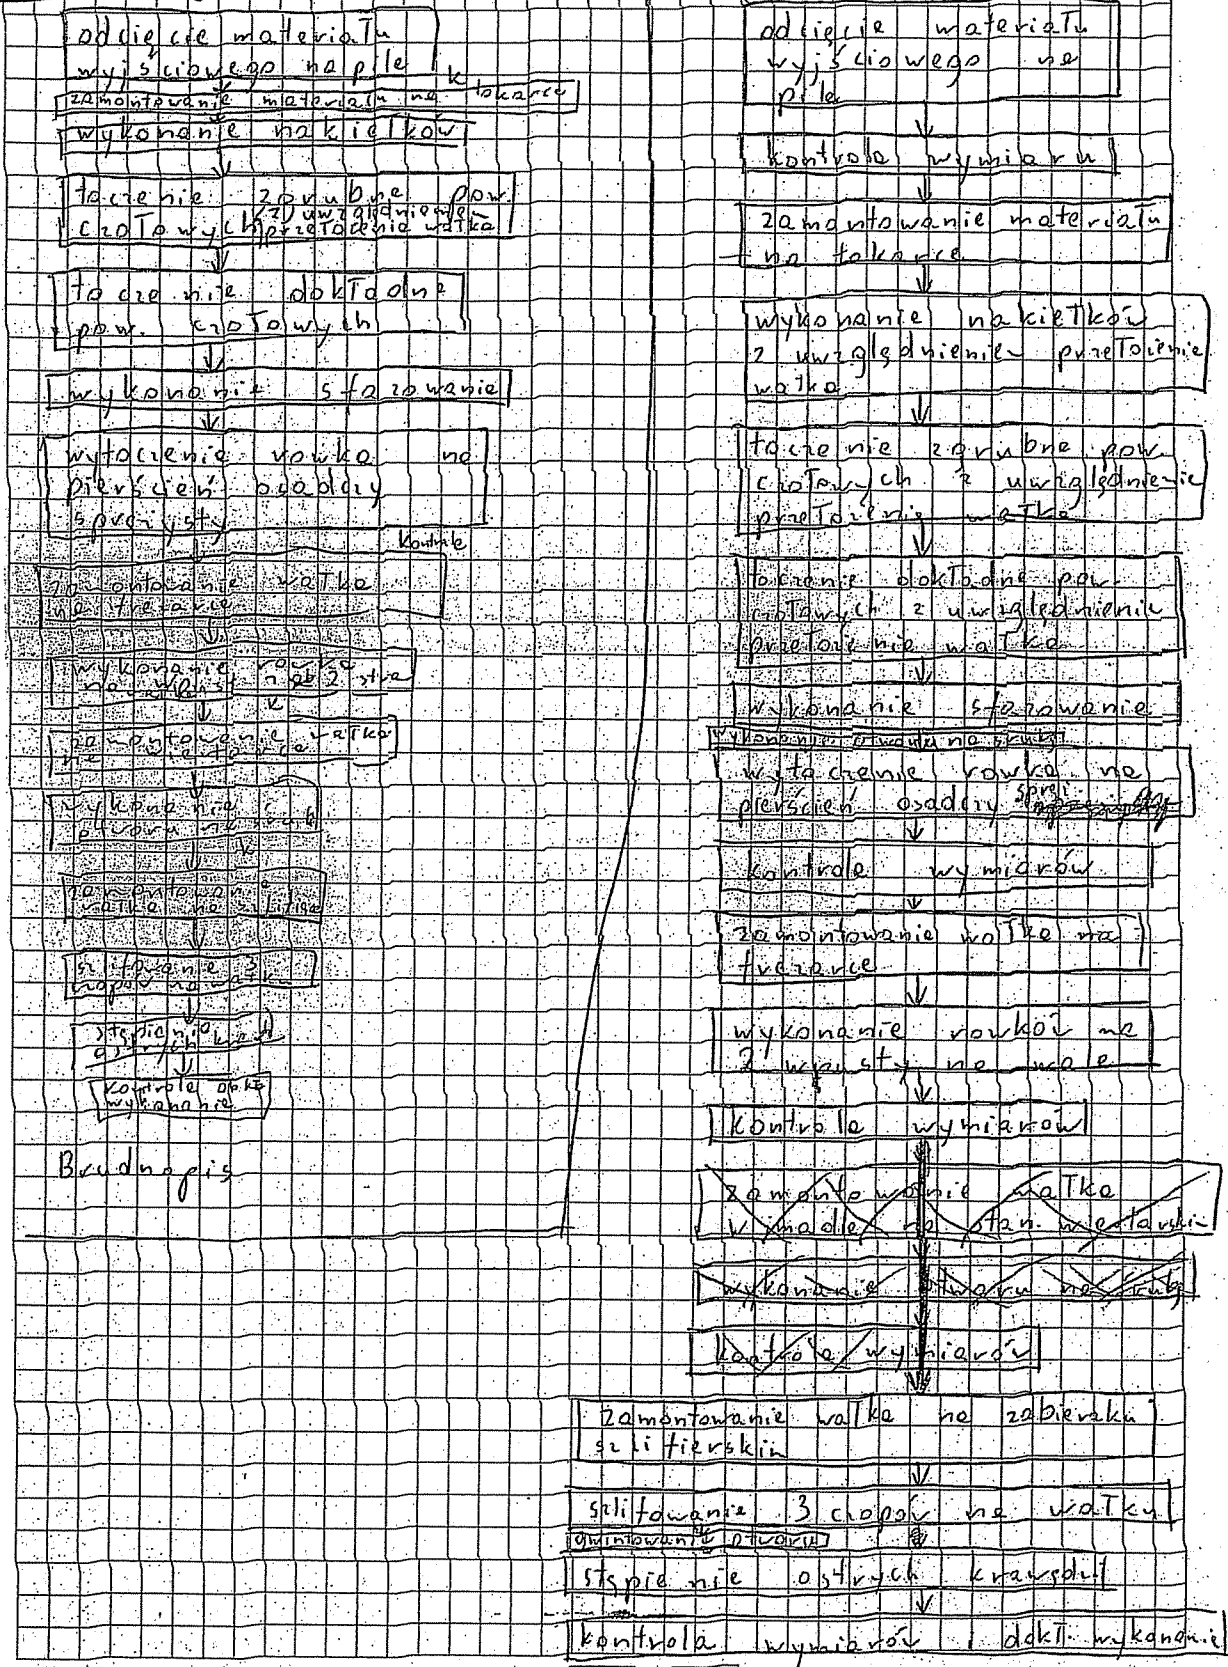 odcięcie materiału
wyjściowego na pile
k
zamontowanie materiału na tokarce
wykonanie nakiełków
toczenie zgrubne pow.
z uwzględnieniem
czołowych przetoczenia wałka
toczenie dokładne
pow. czołowych
wykonanie sfazowania
wytoczenie rowka na
pierścień osadczy
sprężysty
kontrola
zamontowanie wałka
na frezarce
wykonanie rowka
na wpust
k
zamontowanie wałka
na
wykonanie
otworu na śrub
k
zamontowanie
wałka na szlifierce
szlifowanie 3
czopów na wałku
stępienie
ostrych krawędzi
kontrola dokł
wykonania
Brudnopis
odcięcie materiału
wyjściowego na
pile
kontrola wymiaru
zamontowanie materiału
na tokarce
wykonanie nakiełków
z uwzględnieniem przetoczenia
wałka
toczenie zgrubne pow.
czołowych z uwzględnienie
przetoczenia wałka
toczenie dokładne pow.
czołowych z uwzględnieniem
przetoczenia wałka
wykonanie sfazowania
wykonanie otworu na śrubę
wytoczenie rowka na
pierścień osadczy spręż.
kontrola wymiarów
zamontowanie wałka na
frezarce
wykonanie rowków na
2 wpusty na wale
kontrola wymiarów
zamontowanie wałka
w imadle na stan.
wykonanie otworu na śrubę
kontrola wymiarów
zamontowanie wałka na zabieraku
szlifierskim
szlifowanie 3 czopów na wałku
gwintowanie otworu
stępienie ostrych krawędzi
kontrola wymiarów i dokł. wykonania